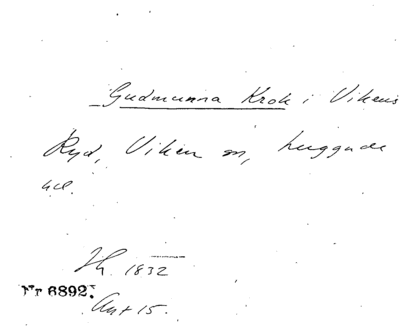 Gudmunna Krok i Vikens
Ryd, Viken sn, huggade
ut.
Jh. 1832
Nr 6892.
Ant 15.